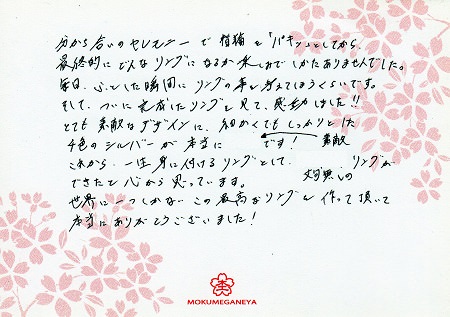 分かち合いのセレモニーで指輪を「パキッ」としてから、
最終的にどんなリングになるか楽しみでしかたありませんでした。
毎日、ふとした瞬間にリングの事を考えてしまうくらいです。
そして、ついに完成したリングを見て、感動しました!!
とても素敵なデザインに、細かくてもしっかりとした
4色のシルバーが本当に素敵です!
これから一生身に付けるリングとして、 リングが
できたと心から思っています。
世界に一つしかないこの最高なリングを作って頂いて
本当にありがとうございました!
MOKUMEGANEYA